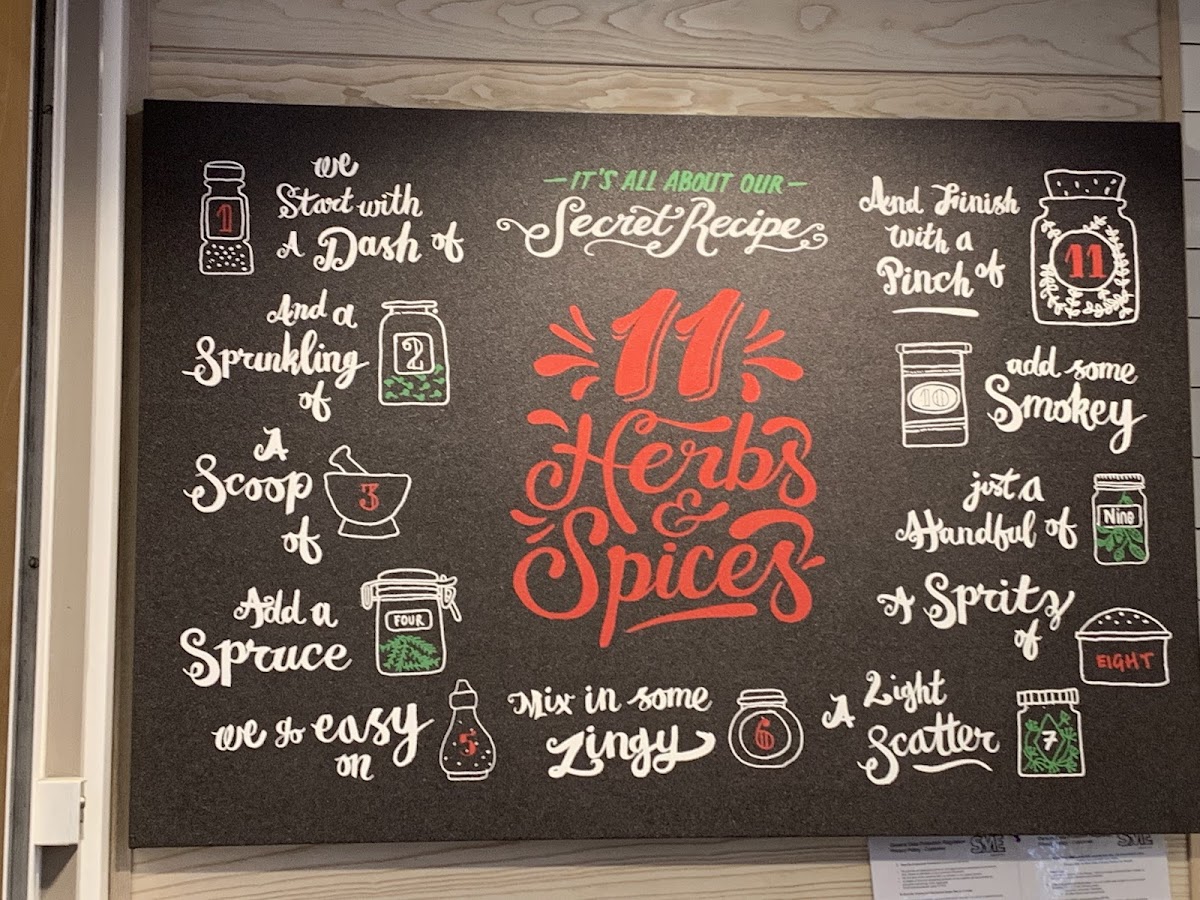 IT'S ALL ABOUT OUR
Secret Recipe
11
Herbs
&
Spices
we
Start with
A Dash of
1
And a
Sprunkling
of
2
A
Scoop
of
3
Add a
Spruce
FOUR
we go easy
on
5
Mix in some
Zingy
6
A Light
Scatter
7
A Spritz
of
EIGHT
just a
Handful of
Nine
add some
Smokey
10
And Finish
with a
Pinch of
11
SME
SME